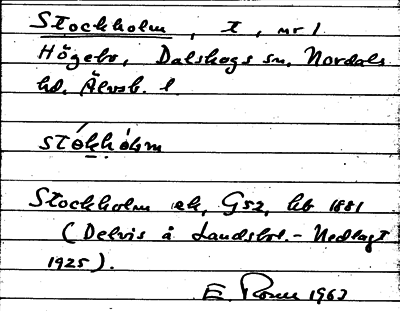 Stockholm, t, nr 1
Högebo, Dalskogs sn, Nordals
hd, Älvsb. l
stókhólm
Stockholm ek, G52, hb 1881
(Delvis å Landsbol. - Nedlagt
1925).
E. Rosen 1963